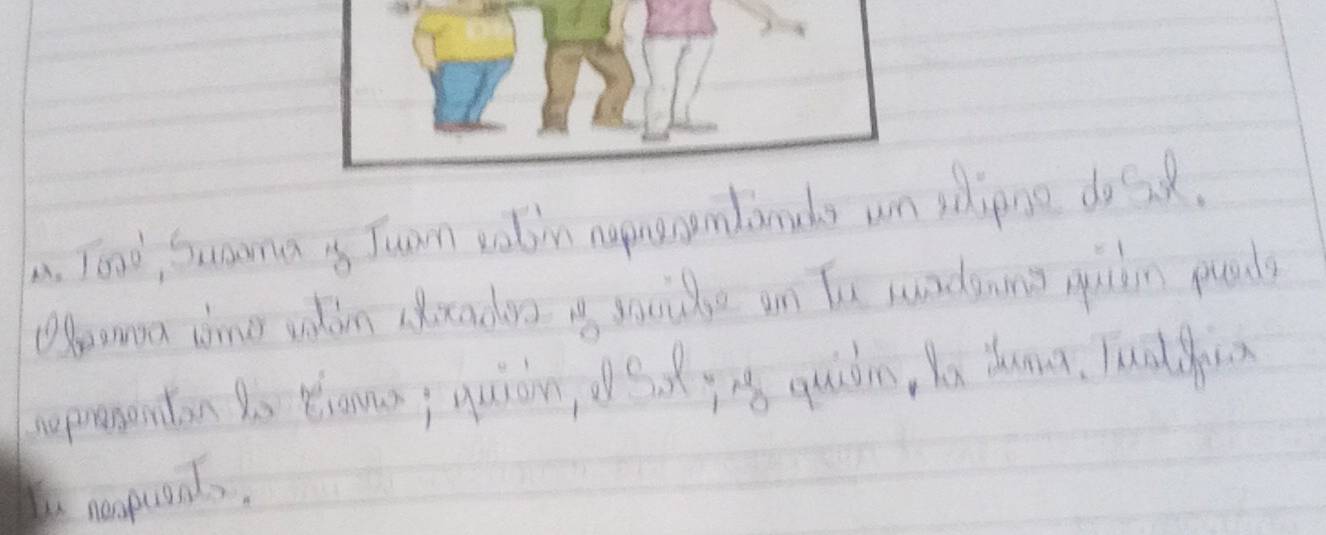 José, Susana y Juan están representando un eclipse de Sol.
Observa cómo están ubicados y escribe en tu cuaderno quién puede
representan la tierra; quién, el Sol; y quién, la luna. Justifica
tu respuesta.